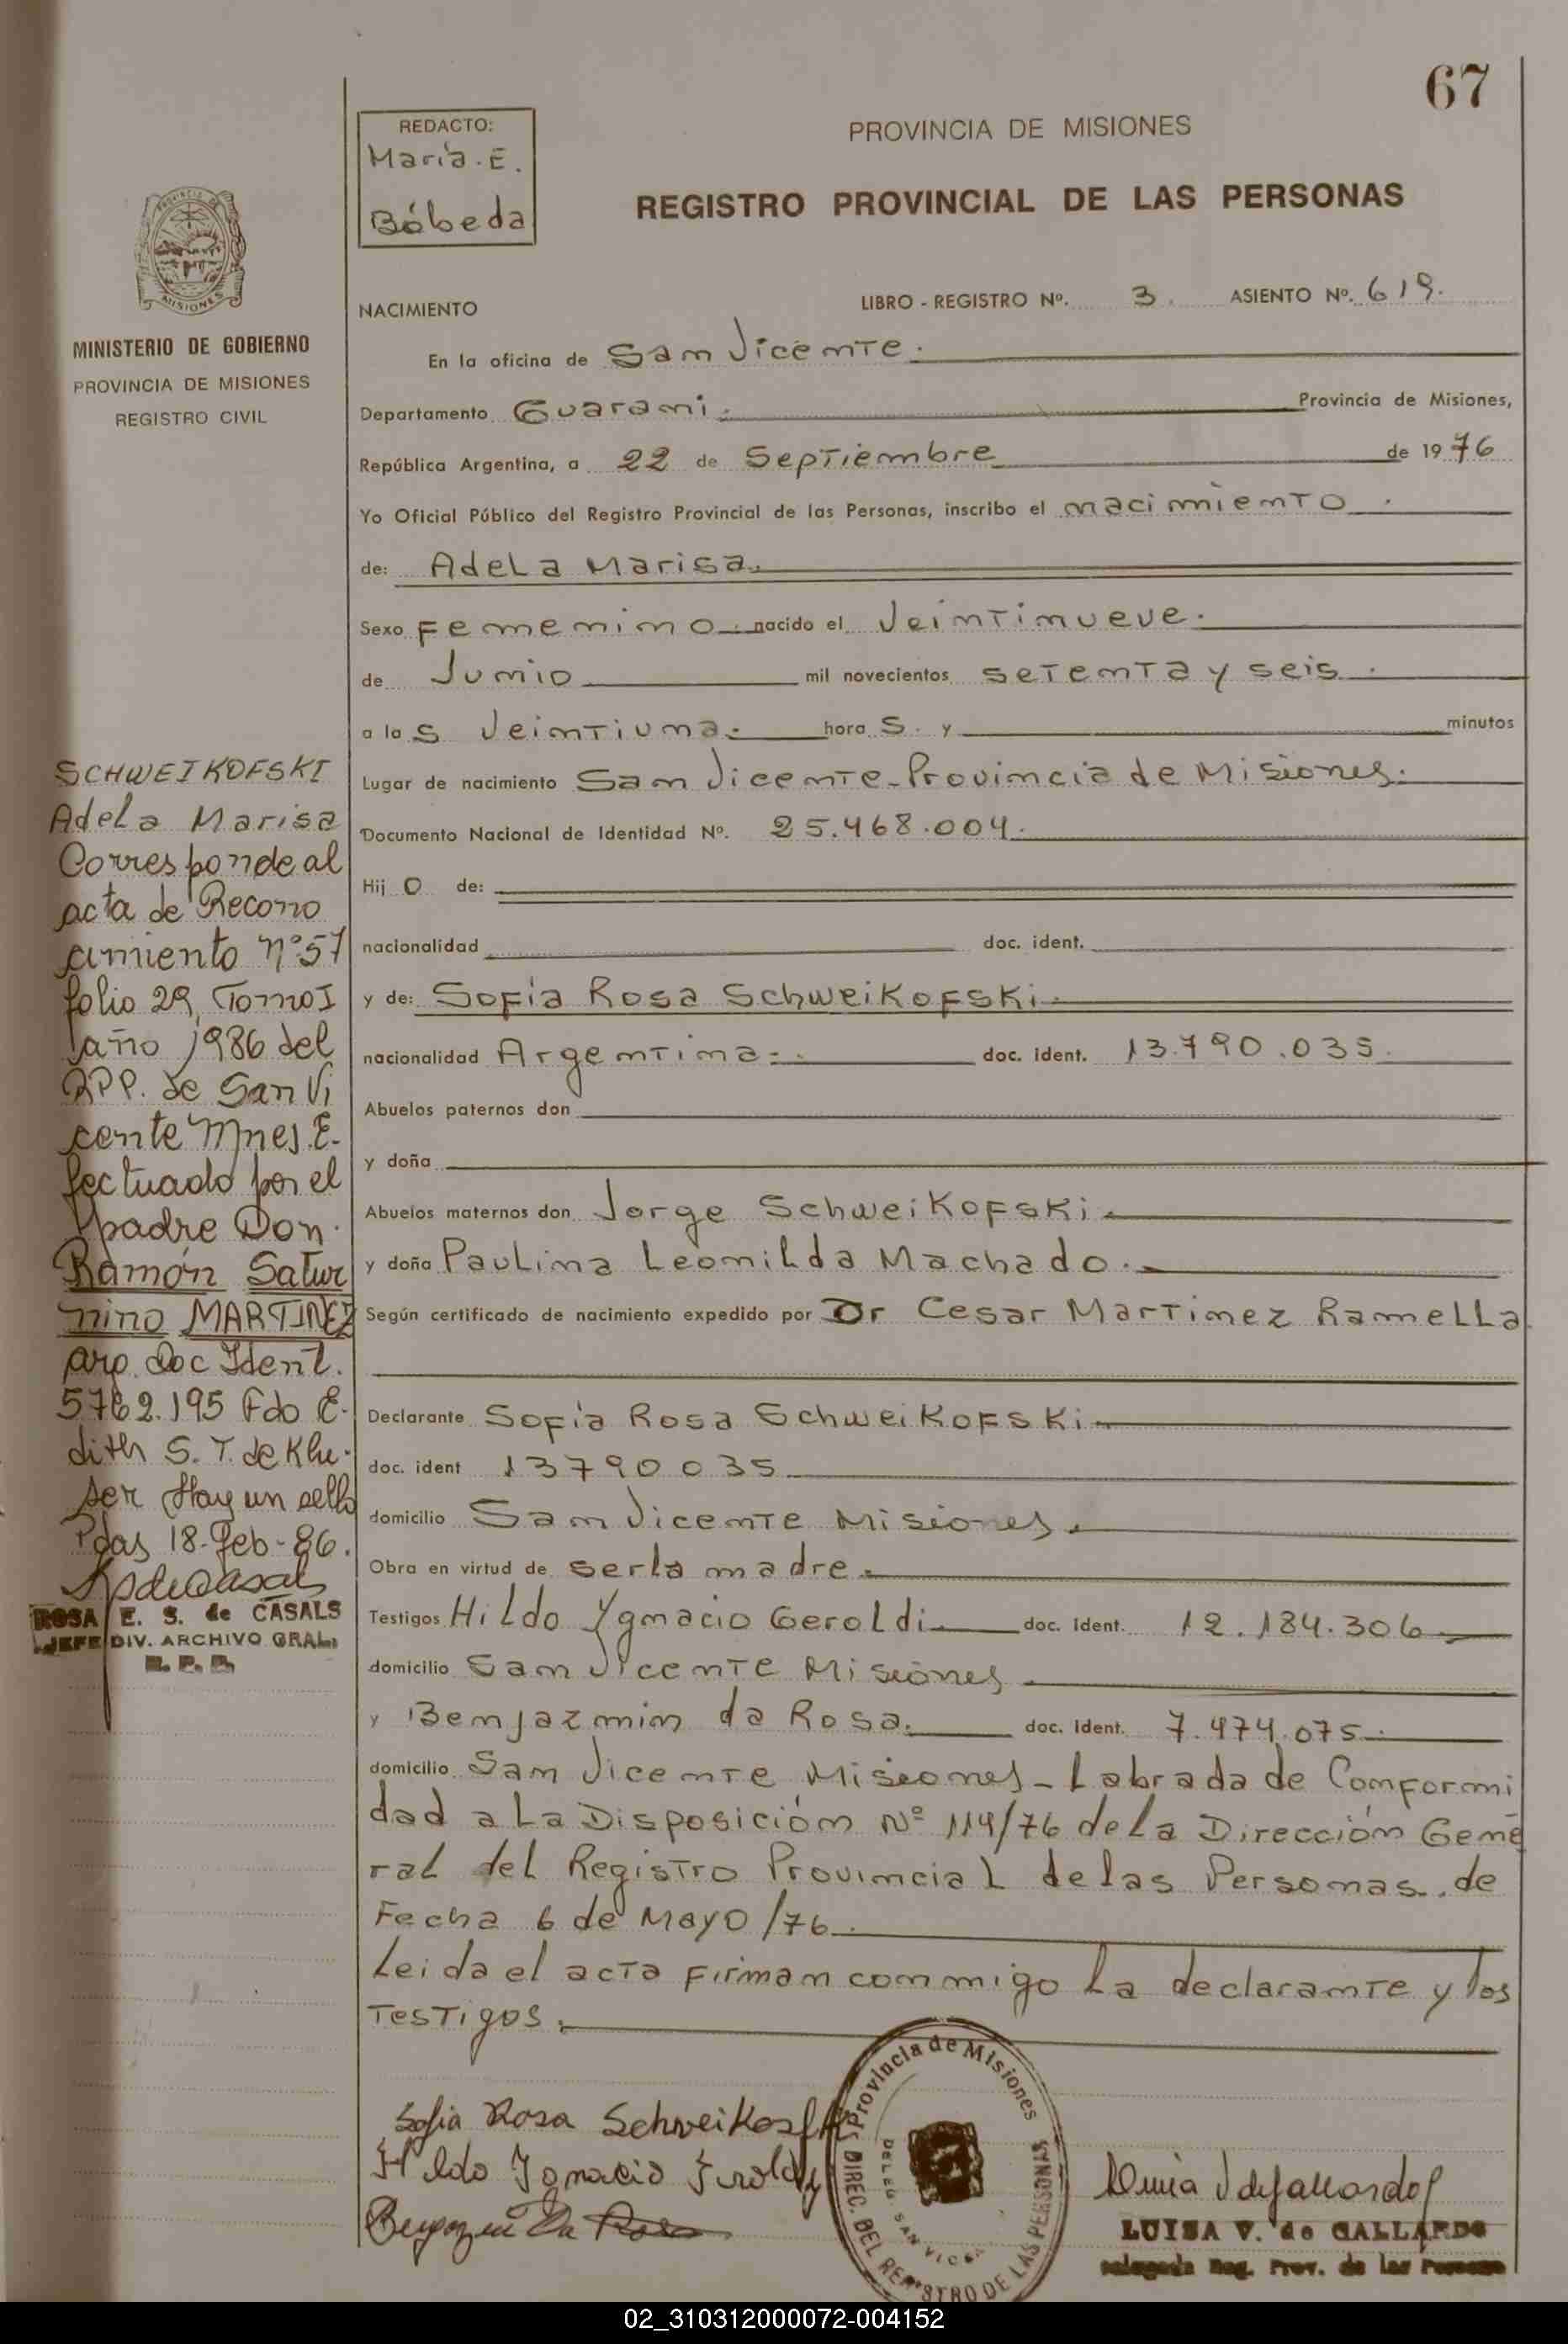 67
REDACTO:
María. E.
Bóbeda
PROVINCIA DE MISIONES
REGISTRO PROVINCIAL DE LAS PERSONAS
MISIONES
MINISTERIO DE GOBIERNO
PROVINCIA DE MISIONES
REGISTRO CIVIL
NACIMIENTO LIBRO - REGISTRO Nº. 3. ASIENTO Nº. 619.
En la oficina de San Vicente.
Departamento Guaraní. Provincia de Misiones,
República Argentina, a 22 de Septiembre de 1976
Yo Oficial Público del Registro Provincial de las Personas, inscribo el nacimiento.
de: Adela Marisa.
Sexo Femenino. nacido el Veintinueve.
de Junio mil novecientos setenta y seis.
a las Veintiuna. horas. y minutos
Lugar de nacimiento San Vicente-Provincia de Misiones.
Documento Nacional de Identidad Nº. 25.468.004.
Hijo de:
nacionalidad doc. ident.
y de: Sofía Rosa Schweikofski.
nacionalidad Argentina. doc. ident. 13.790.035.
Abuelos paternos don
y doña
Abuelos maternos don Jorge Schweikofski.
y doña Paulina Leonilda Machado.
Según certificado de nacimiento expedido por Dr Cesar Martinez Ramella.
Declarante Sofía Rosa Schweikofski.
doc. ident 13790035
domicilio San Vicente Misiones.
Obra en virtud de ser la madre.
Testigos Hildo Ygnacio Geroldi doc. ident. 12.184.306
domicilio San Vicente Misiones
y Benjazmin da Rosa. doc. ident. 7.474.075.
domicilio San Vicente Misiones - Labrada de Conformi
dad a la Disposición Nº 114/76 de la Dirección Gene
ral del Registro Provincial de las Personas, de
Fecha 6 de Mayo /76.
Leida el acta firman conmigo la declarante y los
Testigos.
SCHWEIKOFSKI
Adela Marisa
Corresponde al
acta de Recono
cimiento Nº 57
folio 29, Tomo I
año 1986 del
RPP. de San Vi
cente Mnes. E-
fectuado por el
padre Don
Ramón Satur
nino MARTINEZ
arg. Doc Ident.
5762.195 Fdo E-
dith S. T. de Klu-
ser Hay un sello
Pdas 18-Feb-86.
ROSA E. S. de CASALS
JEFE DIV. ARCHIVO GRAL.
R. P. P.
Sofia Rosa Schweikosfki
Hildo Ignacio Geroldi
Da Rosa
Provincia de Misiones
DIREC. DEL REGISTRO DE LAS PERSONAS
DELEG. SAN VICENTE
LUISA V. de GALLARDO
Delegada Reg. Prov. de las Personas
02_310312000072-004152